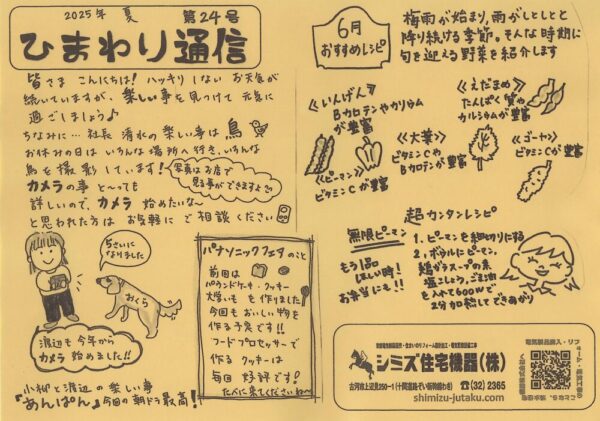 2025年 夏 第24号
ひまわり通信
皆さま こんにちは! ハッキリ しない お天気が
続いていますが、楽しい事を見つけて 元気に
過ごしましょう♪
ちなみに… 社長 清水の楽しい事は 鳥
お休みの日は いろんな場所へ行き、いろんな
鳥を撮影しています!
写真はお店で
見る事ができますよ
カメラの事 と~っても
詳しいので、カメラ 始めたいな~
と思われた方は お気軽に ご相談ください
5さいに
なりました
おくら
渡辺も 今年から
カメラ 始めました!!
小柳と渡辺の楽しい事
『あんぱん』今回の朝ドラ最高!
パナソニックフェアのこと
前回は
パウンドケーキ・クッキー
大学いも を作りました
今回も おいしい物を
作る予定です!!
フードプロセッサーで
作る クッキーは
毎回 好評です!
ぜひ来てくださいね~
6月
おすすめレシピ
梅雨が始まり、雨がしとしと
降り続ける季節。そんな時期に
旬を迎える野菜を紹介します
《いんげん》
Bカロテンやカリウム
が豊富
《えだまめ》
たんぱく質や
カルシウムが豊富
《大葉》
ビタミンCや
Bカロテンが豊富
《ゴーヤ》
ビタミンCが豊富
《ピーマン》
ビタミンCが豊富
超カンタンレシピ
無限ピーマン
もう1品
ほしい時!
お弁当にも!!
1. ピーマンを細切りにする
2. ボウルにピーマン、
鶏ガラスープの素
塩こしょう、ごま油
を入れて600Wで
2分加熱してできあがり
シミズ住宅機器(株)
古河市上辺見250-1(十間道路ぞい新幹線わき) ☎(32)2365
shimizu-jutaku.com